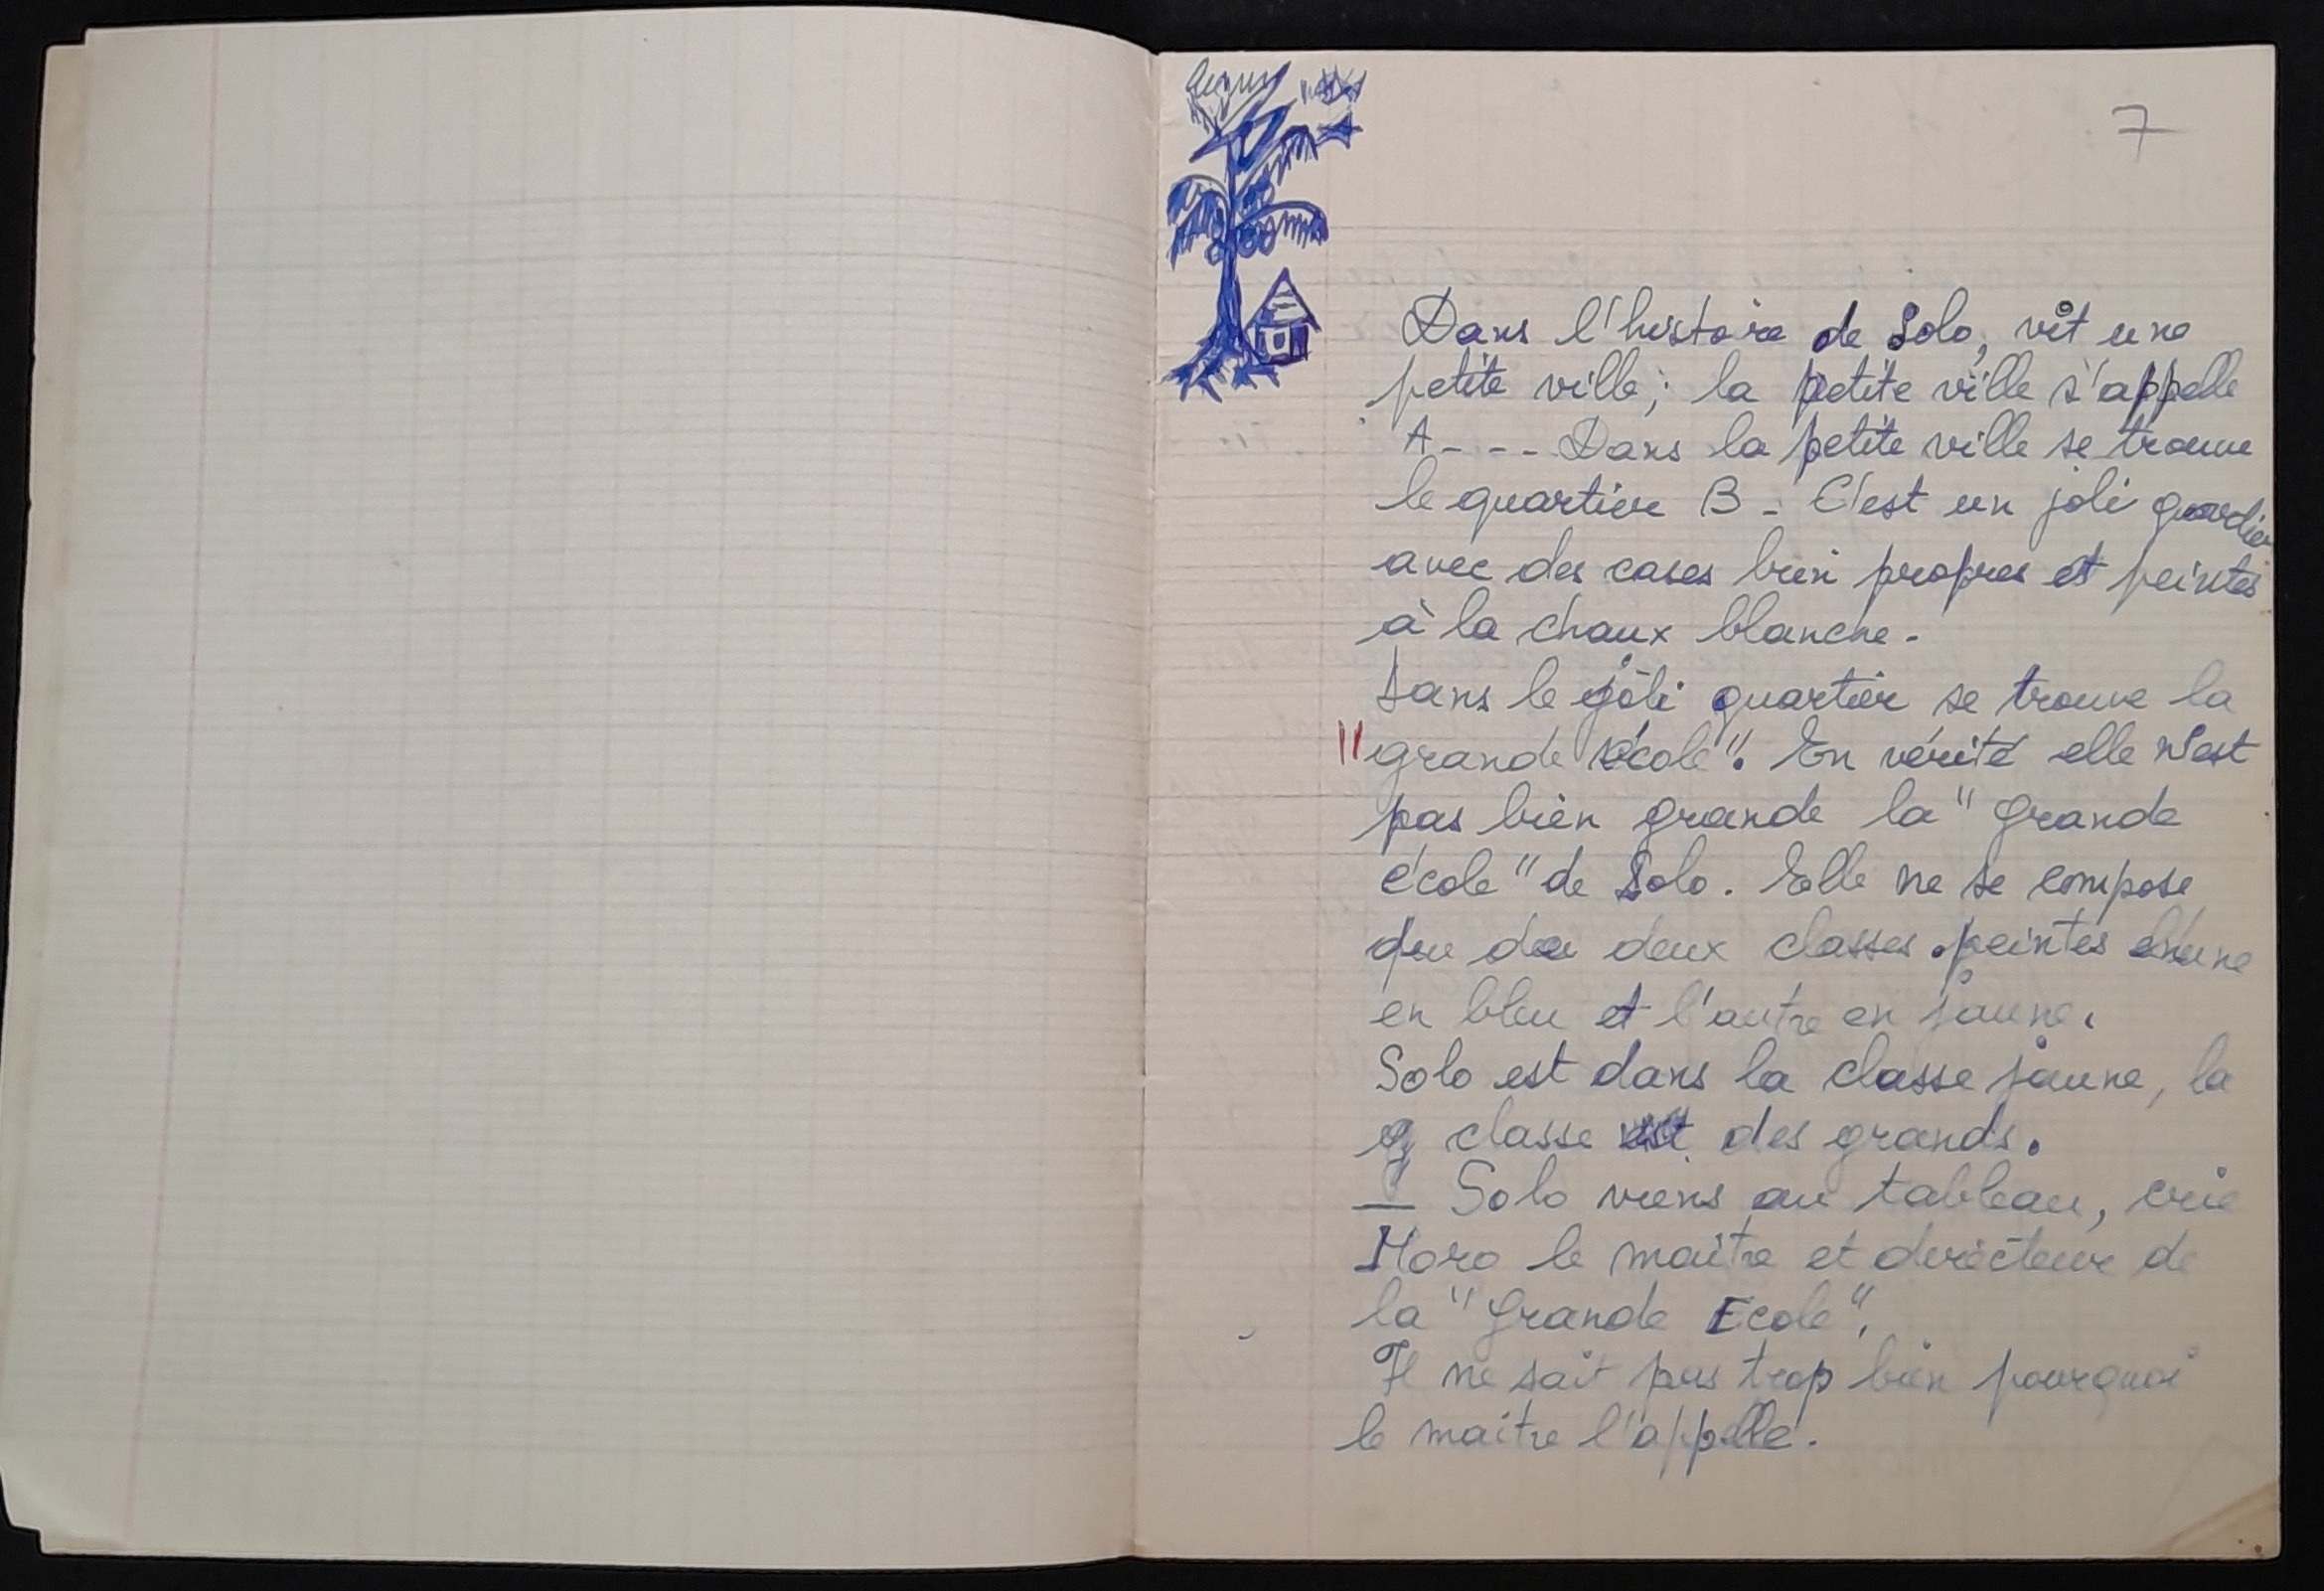 7
Dans l'histoire de Solo, vit une
petite ville; la petite ville s'appelle
A - - - Dans la petite ville se trouve
le quartier B - C'est un joli quartier
avec des cases bien propres et peintes
à la chaux blanche.
Dans le joli quartier se trouve la
"grande école". En vérité elle n'est
pas bien grande la "grande
école" de Solo. Elle ne se compose
que de deux classes peintes l'une
en bleu et l'autre en jaune.
Solo est dans la classe jaune, la
classe des grands.
— Solo viens au tableau, crie
Moro le maître et directeur de
la "Grande Ecole".
Il ne sait pas trop bien pourquoi
le maitre l'appelle.